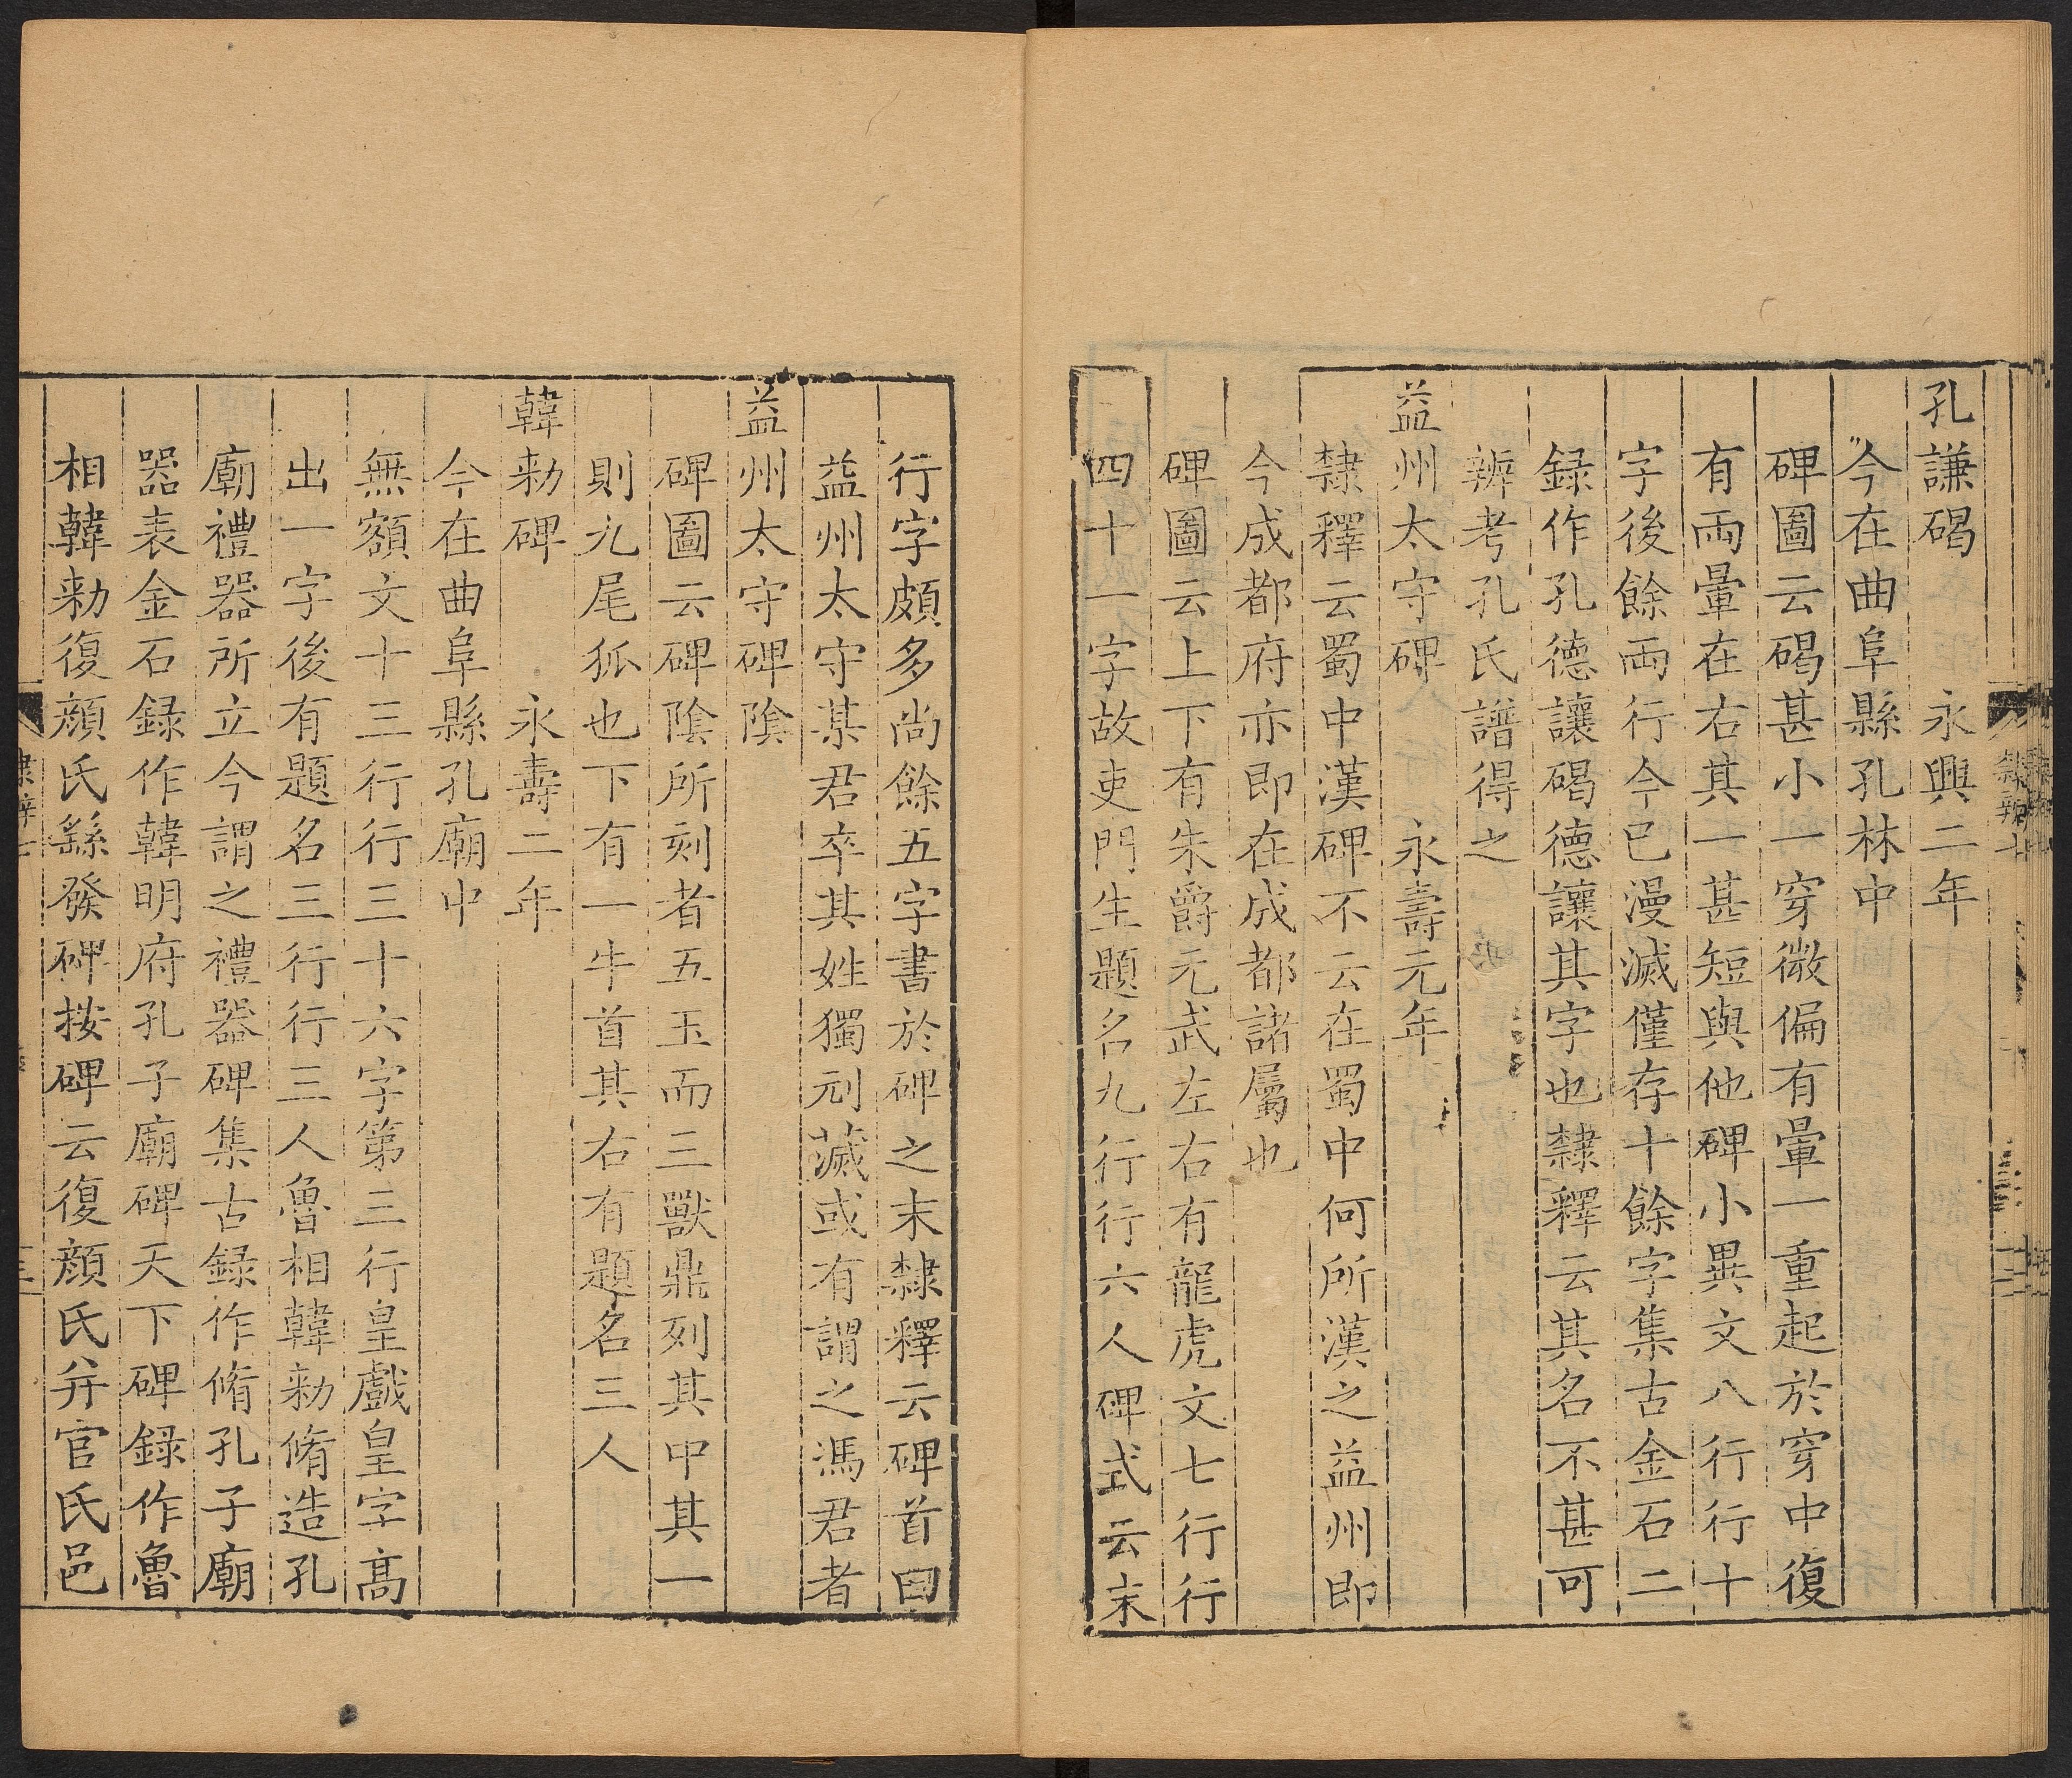 孔謙碣　　永興二年
今在曲阜縣孔林中
碑圖云碣甚小一穿微偏有暈一重起於穿中復
有兩暈在右其一甚短與他碑小異文八行行十
字後餘兩行今已漫滅僅存十餘字集古金石二
録作孔德讓碣德讓其字也隸釋云其名不甚可
辨考孔氏譜得之
益州太守碑　　永壽元年
隸釋云蜀中漢碑不云在蜀中何所漢之益州即
今成都府亦即在成都諸屬也
碑圖云上下有朱爵元武左右有龍虎文七行行
四十一字故吏門生題名九行行六人碑式云末
行字頗多尚餘五字書於碑之末隸釋云碑首曰
益州太守某君卒其姓獨刓滅或有謂之馮君者
益州太守碑陰
碑圖云碑陰所刻者五玉而三獸鼎列其中其一
則九尾狐也下有一牛首其右有題名三人
韓勑碑　　永壽二年
今在曲阜縣孔廟中
無額文十三行行三十六字第三行皇戲皇字高
出一字後有題名三行行三人魯相韓勑脩造孔
廟禮器所立今謂之禮器碑集古録作脩孔子廟
器表金石録作韓明府孔子廟碑天下碑録作魯
相韓勑復顏氏繇發碑按碑云復顏氏并官氏邑